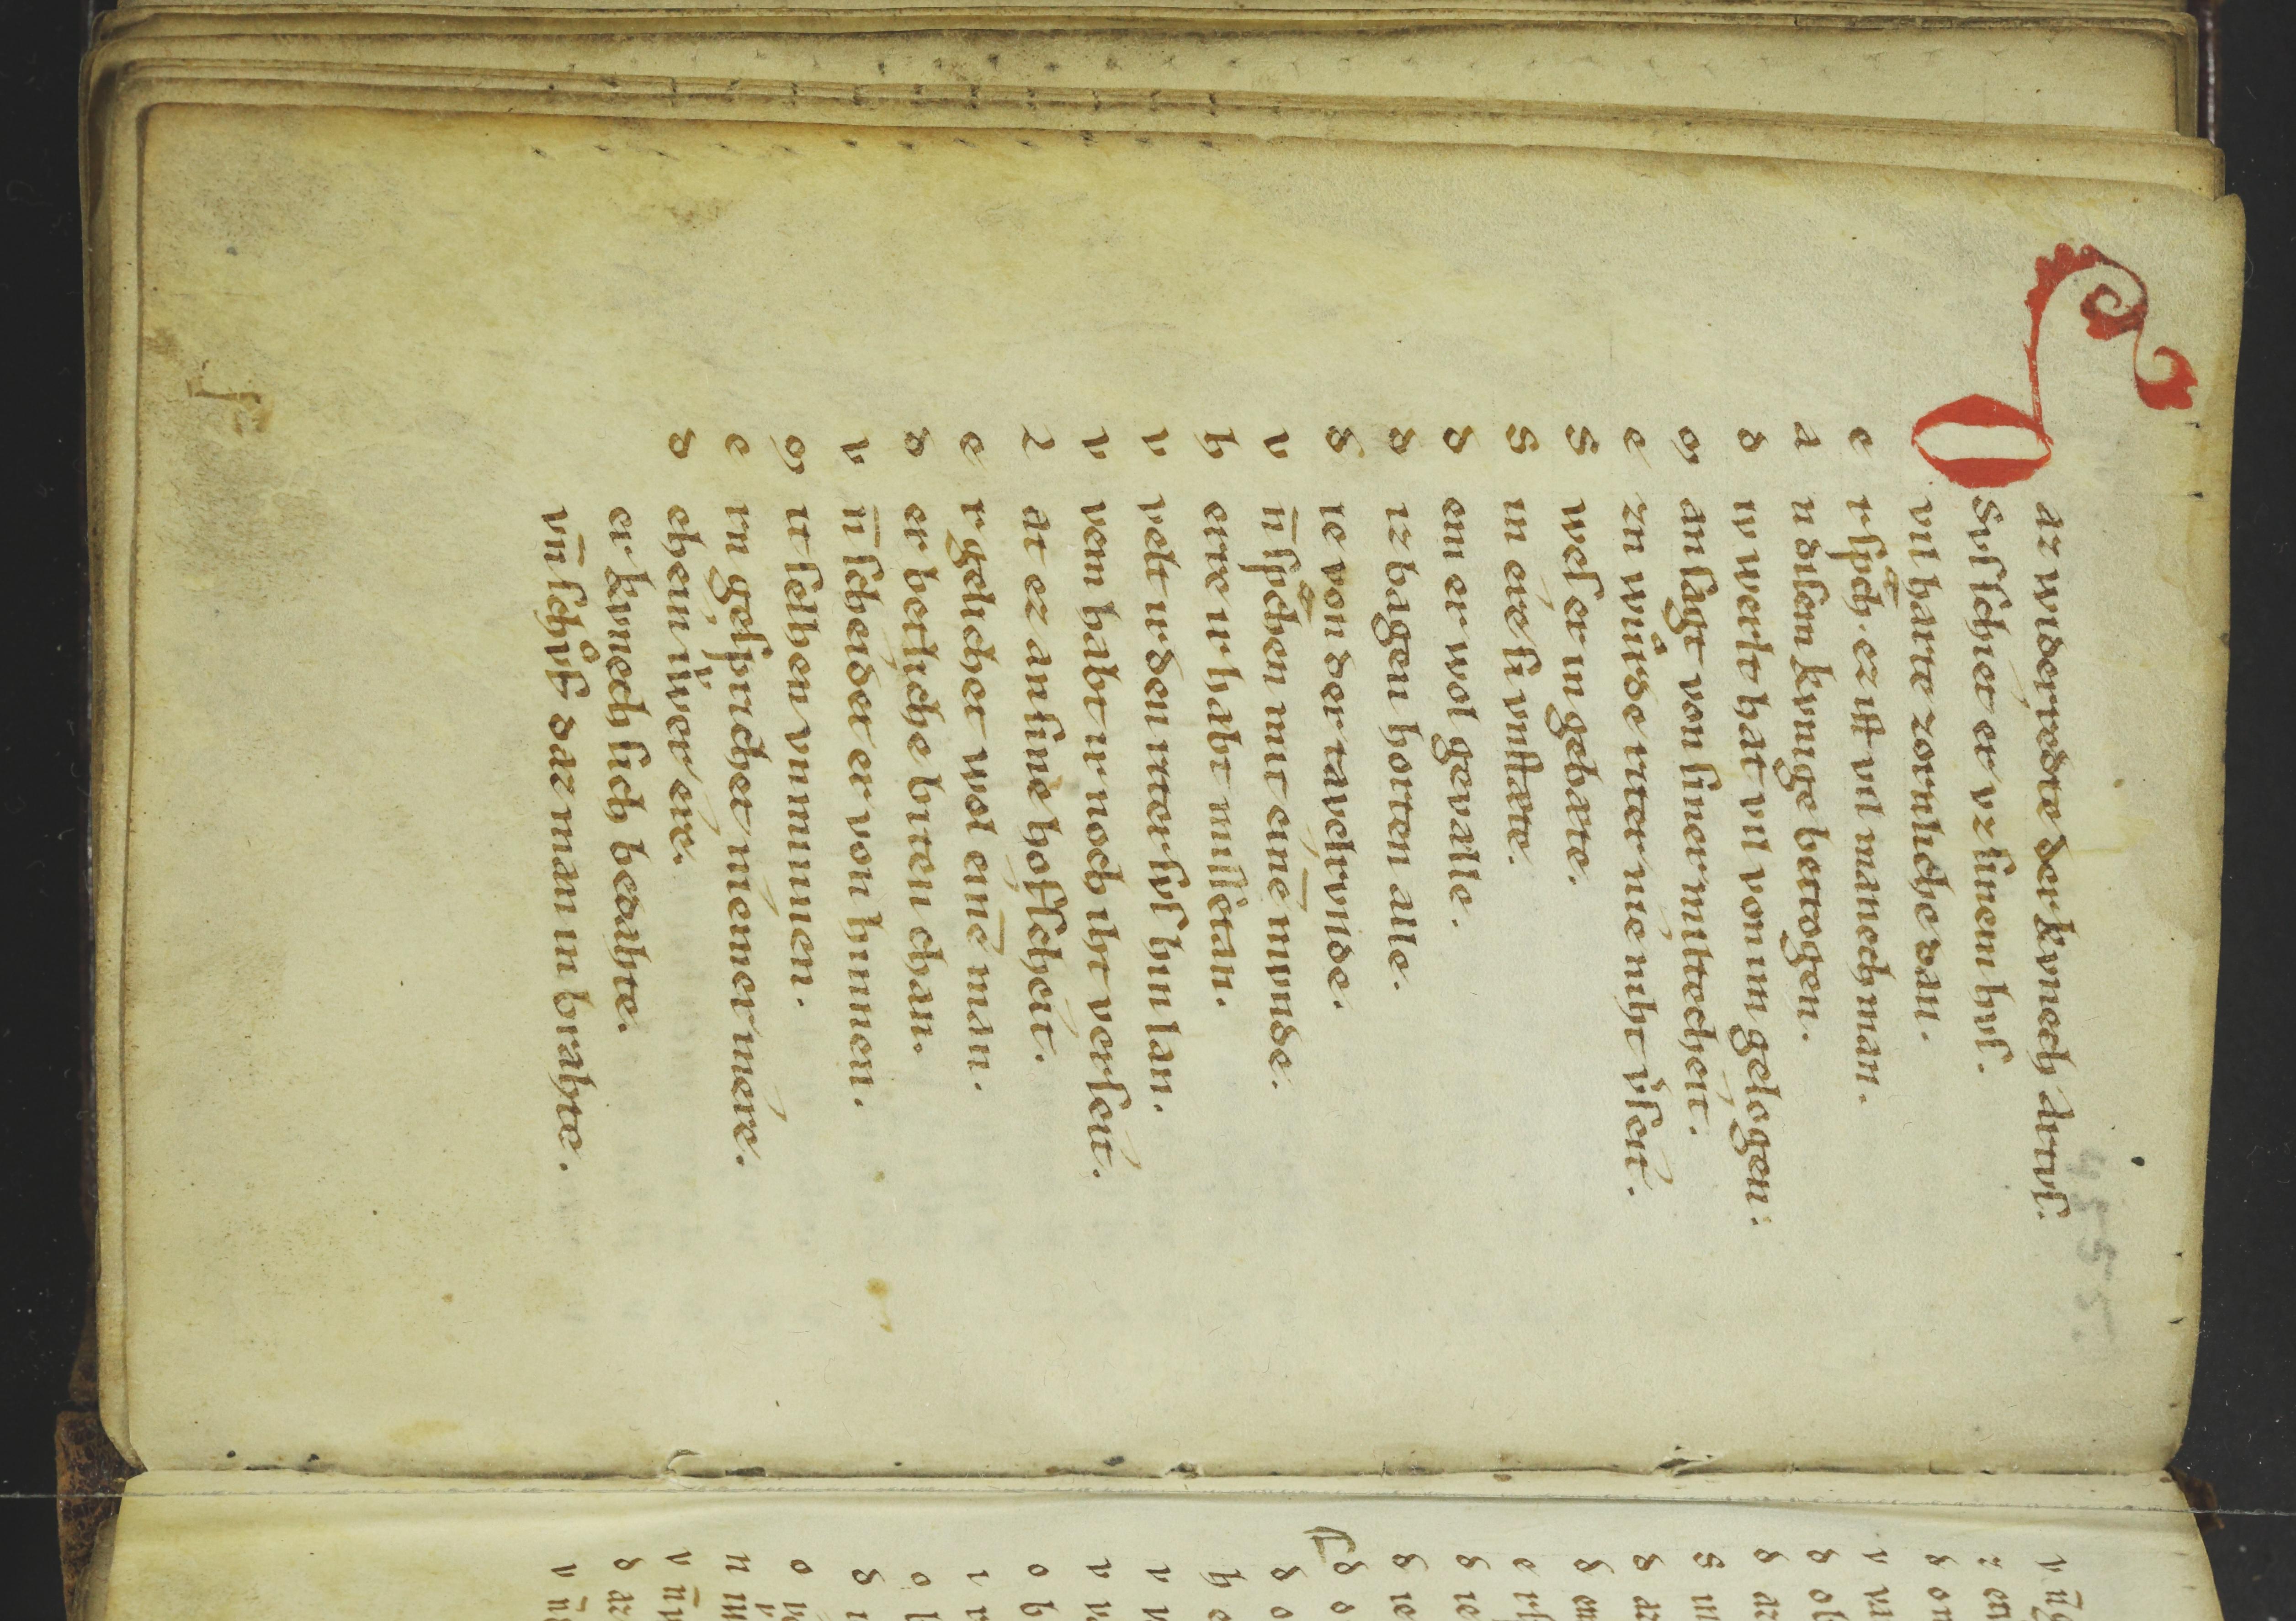 Daz widerredte der kvnech Artvſ.
Svſ ſchiet er vz ſinem hvſ.
vil harte zornliche dan.
e r ſpͣch. ez iſt vil manech man.
a n diſem kvnige betrogen.
d iv werlt hat vil von im gelogen:
m an ſagt von ſiner miltecheit.
e zn wůrde ritter nie niht v̓ſeit.
S weſ er in gebæte.
S in ere ſi vnſtæte.
d em er wol gevalle.
d iz hagen horten alle.
d ie von der tavelrvnde.
v n̄ ſpͣchen mit eim̄e mvnde.
h erre ir habt miſſetan.
v velt ir den ritter ſvſ hin lan.
v vem habt ir noch iht verſeit.
l at ez an ſine hofſcheit.
e r gelichet wol eim̄e man.
d er betliche biten chan.
v n̄ ſcheidet er von hinnen.
m it ſelben vnminnen.
e rn geſprichet niemer mere.
d ehein iwer ere.
er kvnech ſich bedahte.
vn̄ ſchv̊f daz man in brahte.